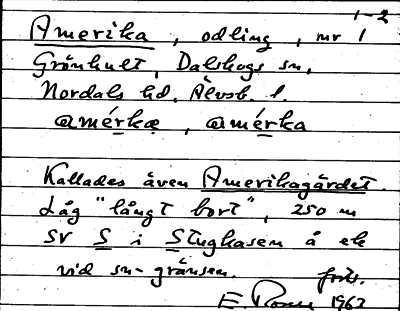 1-2
Amerika, odling, nr 1
Grönhult, Dalskogs sn,
Nordals hd. Älvsb. l.
amérkæ, amérka
Kallades även Amerikagärdet.
Låg "långt bort", 250 m
SV S i Stughasen å ek
vid sn-gränsen. forts.
E. 1963